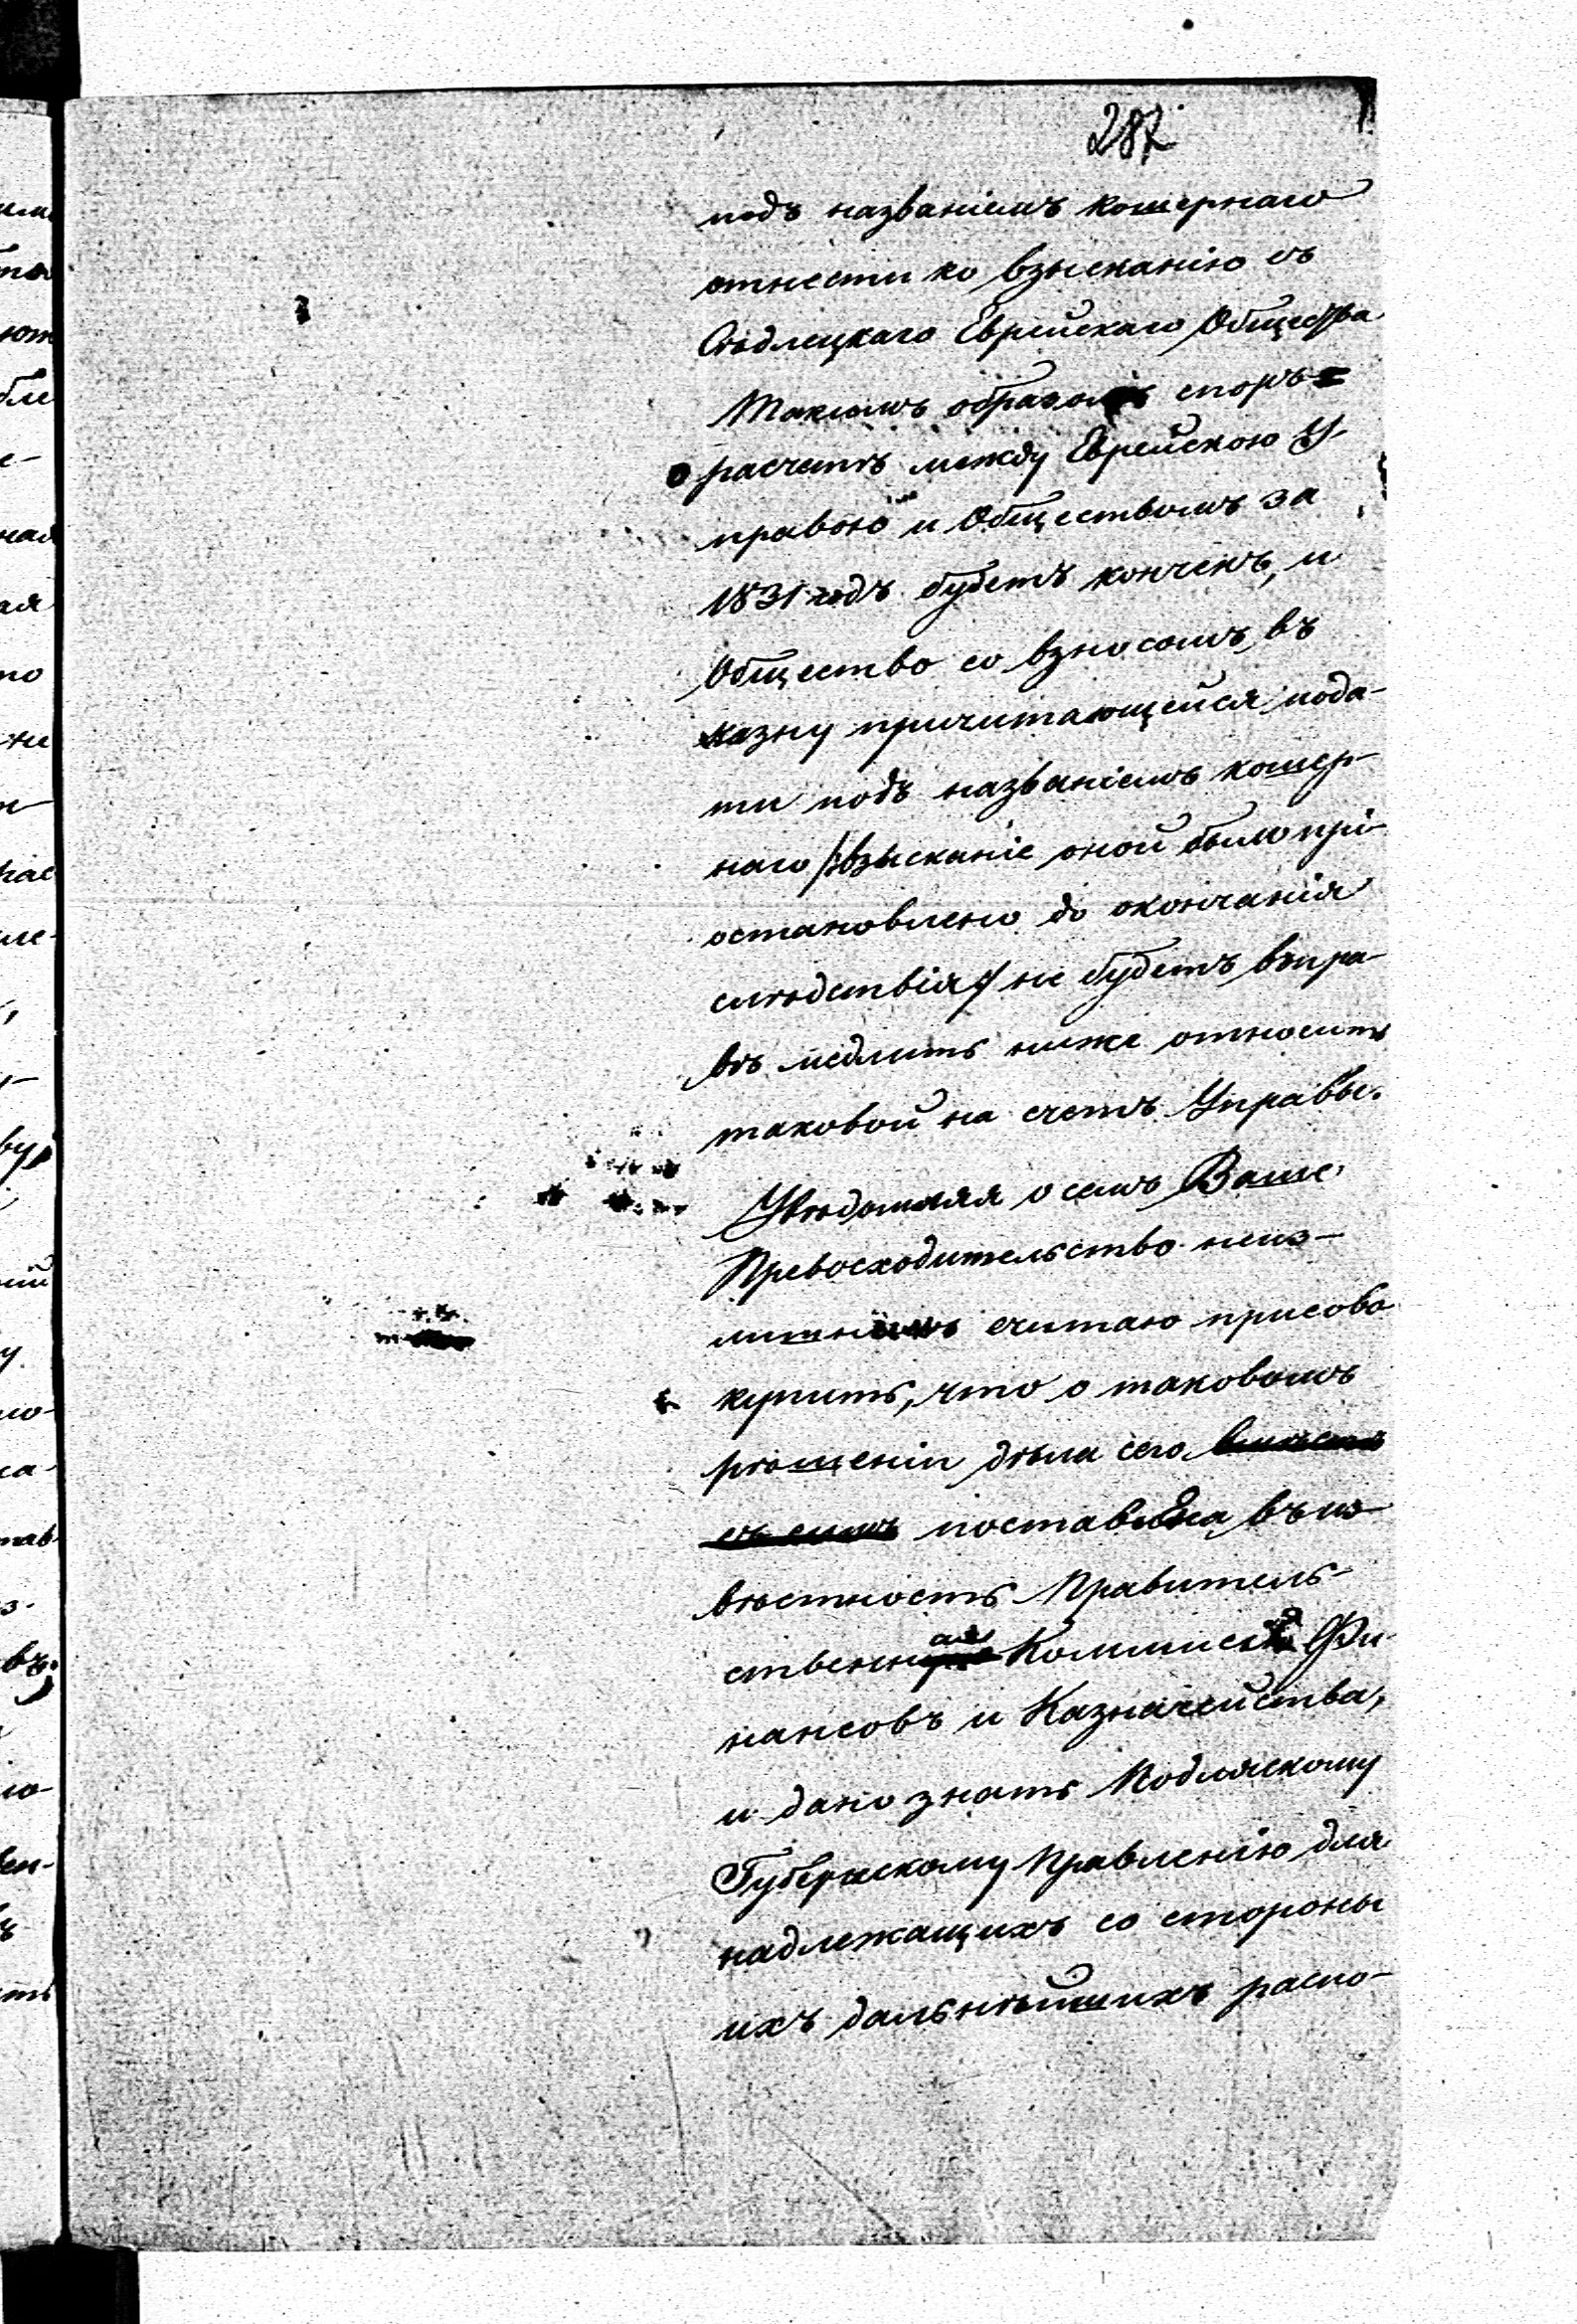 287
подъ названіемъ кошернаго
отнести ко взысканію съ
Сѣдлецкаго Еврейскаго Общества
Такимъ образомъ споръ
о расчетѣ между Еврейскою У-
правою и Обществомъ за
1831 годъ будетъ конченъ, и
Общество со взносомъ въ
казну причитающейся пода-
ти подъ названіемъ кошер-
наго /: взысканіе оной было прі-
остановлено до окончанія
слѣдствія :/ не будетъ впра-
вѣ медлить ниже относить
таковой на счетъ Управы.
Увѣдомляя о семъ Ваше
Превосходительство неиз-
лишнимъ считаю присово
купить, что о таковомъ
рѣшеніи дѣла сего вмѣстѣ
съ симъ поставлена въ из
вѣстность Правитель-
ственная Коммисія Фи-
нансовъ и Казначейства,
и дано знать Подляскому
Губернскому Правленію для
надлежащихъ со стороны
ихъ дальнѣйшихъ распо-